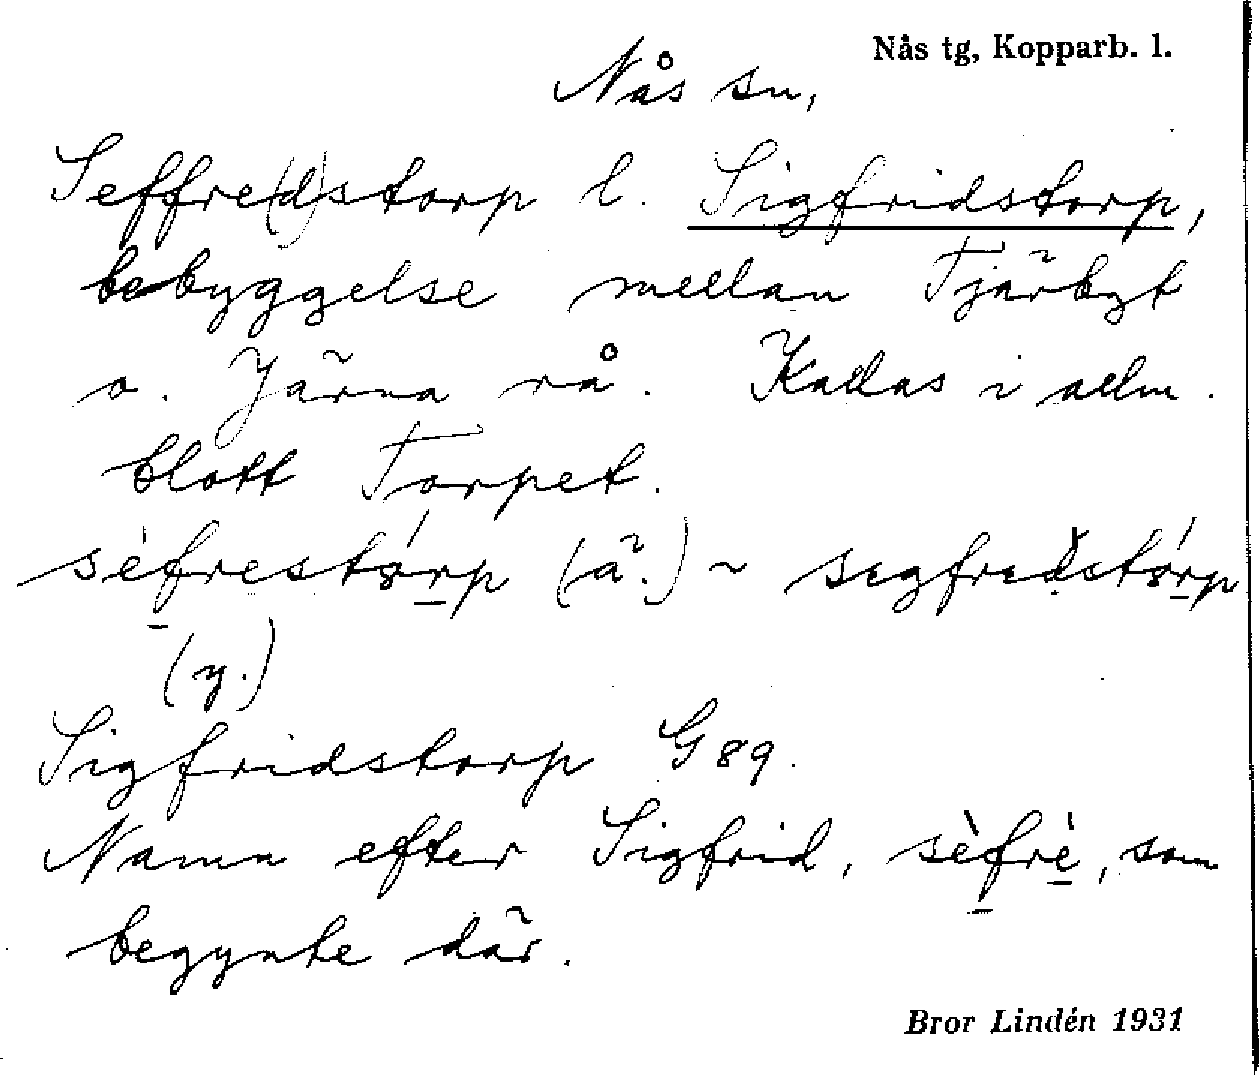 Nås tg, Kopparb. l.
Nås sn,
Seffre(d)storp l. Sigfridstorp,
bebyggelse mellan Tjärbyt
o. Järna rå. Kallas i allm.
blott Torpet.
sèfrestórp (ä.) ~ segfredstórp
(y.)
Sigfridstorp G 89.
Namn efter Sigfrid, sèfrè, som
begynte där.
Bror Lindén 1931